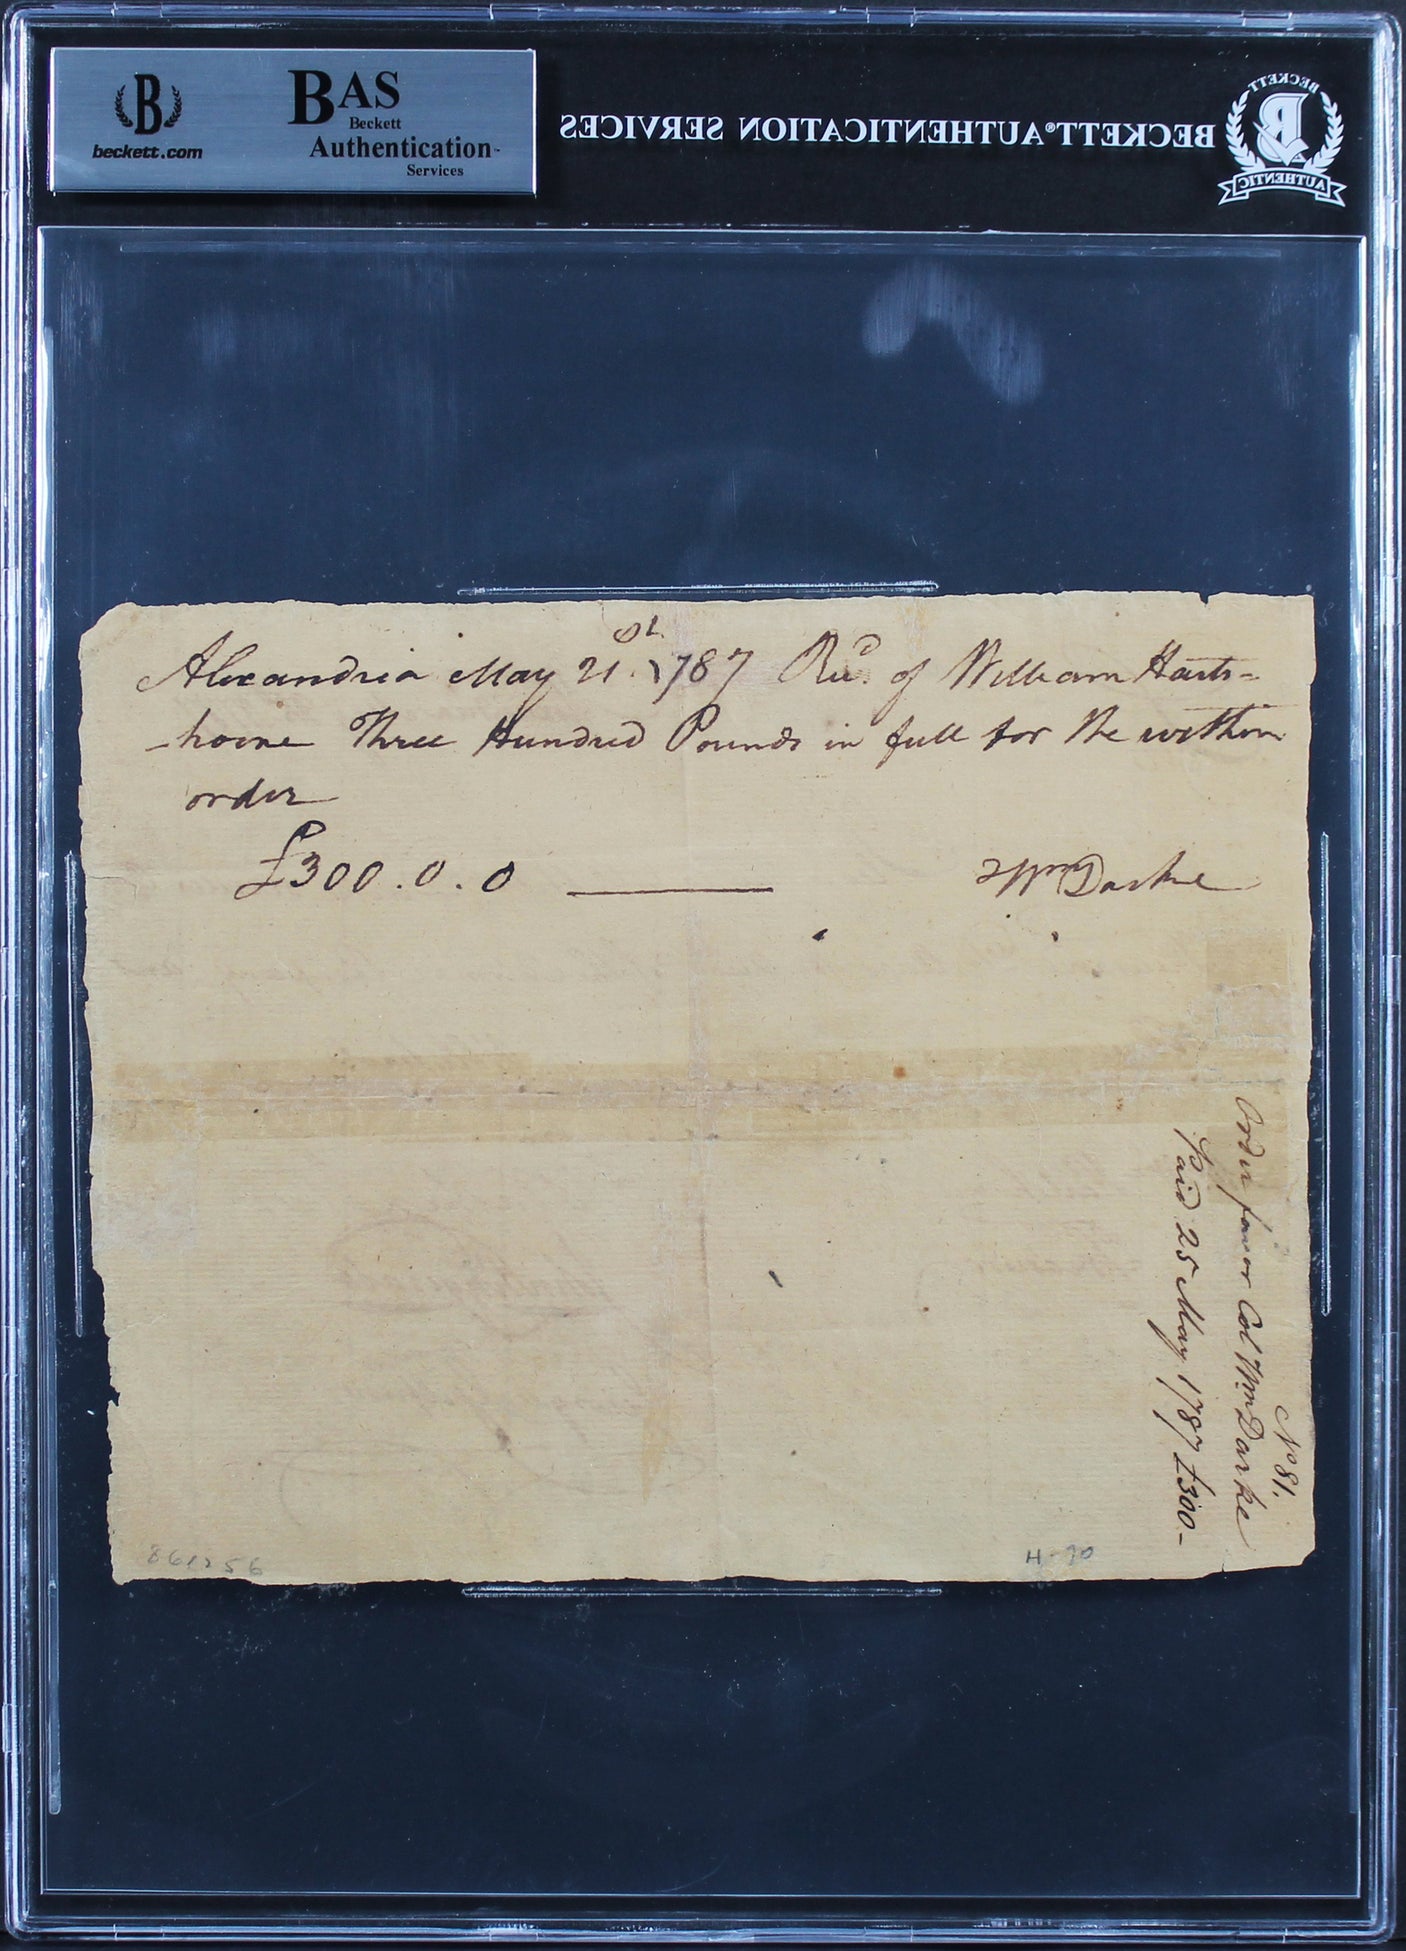 B
beckett.com
BAS
Beckett
Authentication
Services
BECKETT® AUTHENTICATION SERVICES
BECKETT
B
AUTHENTIC
Alexandria May 21.st 1787 Rec.d of William Harts=
-horne Three Hundred Pounds in full for the within
order
£300.0.0 Wm Darke
No 81.
Order favor Col Wm Darke
Paid 25 May 1787 £300-
H-70